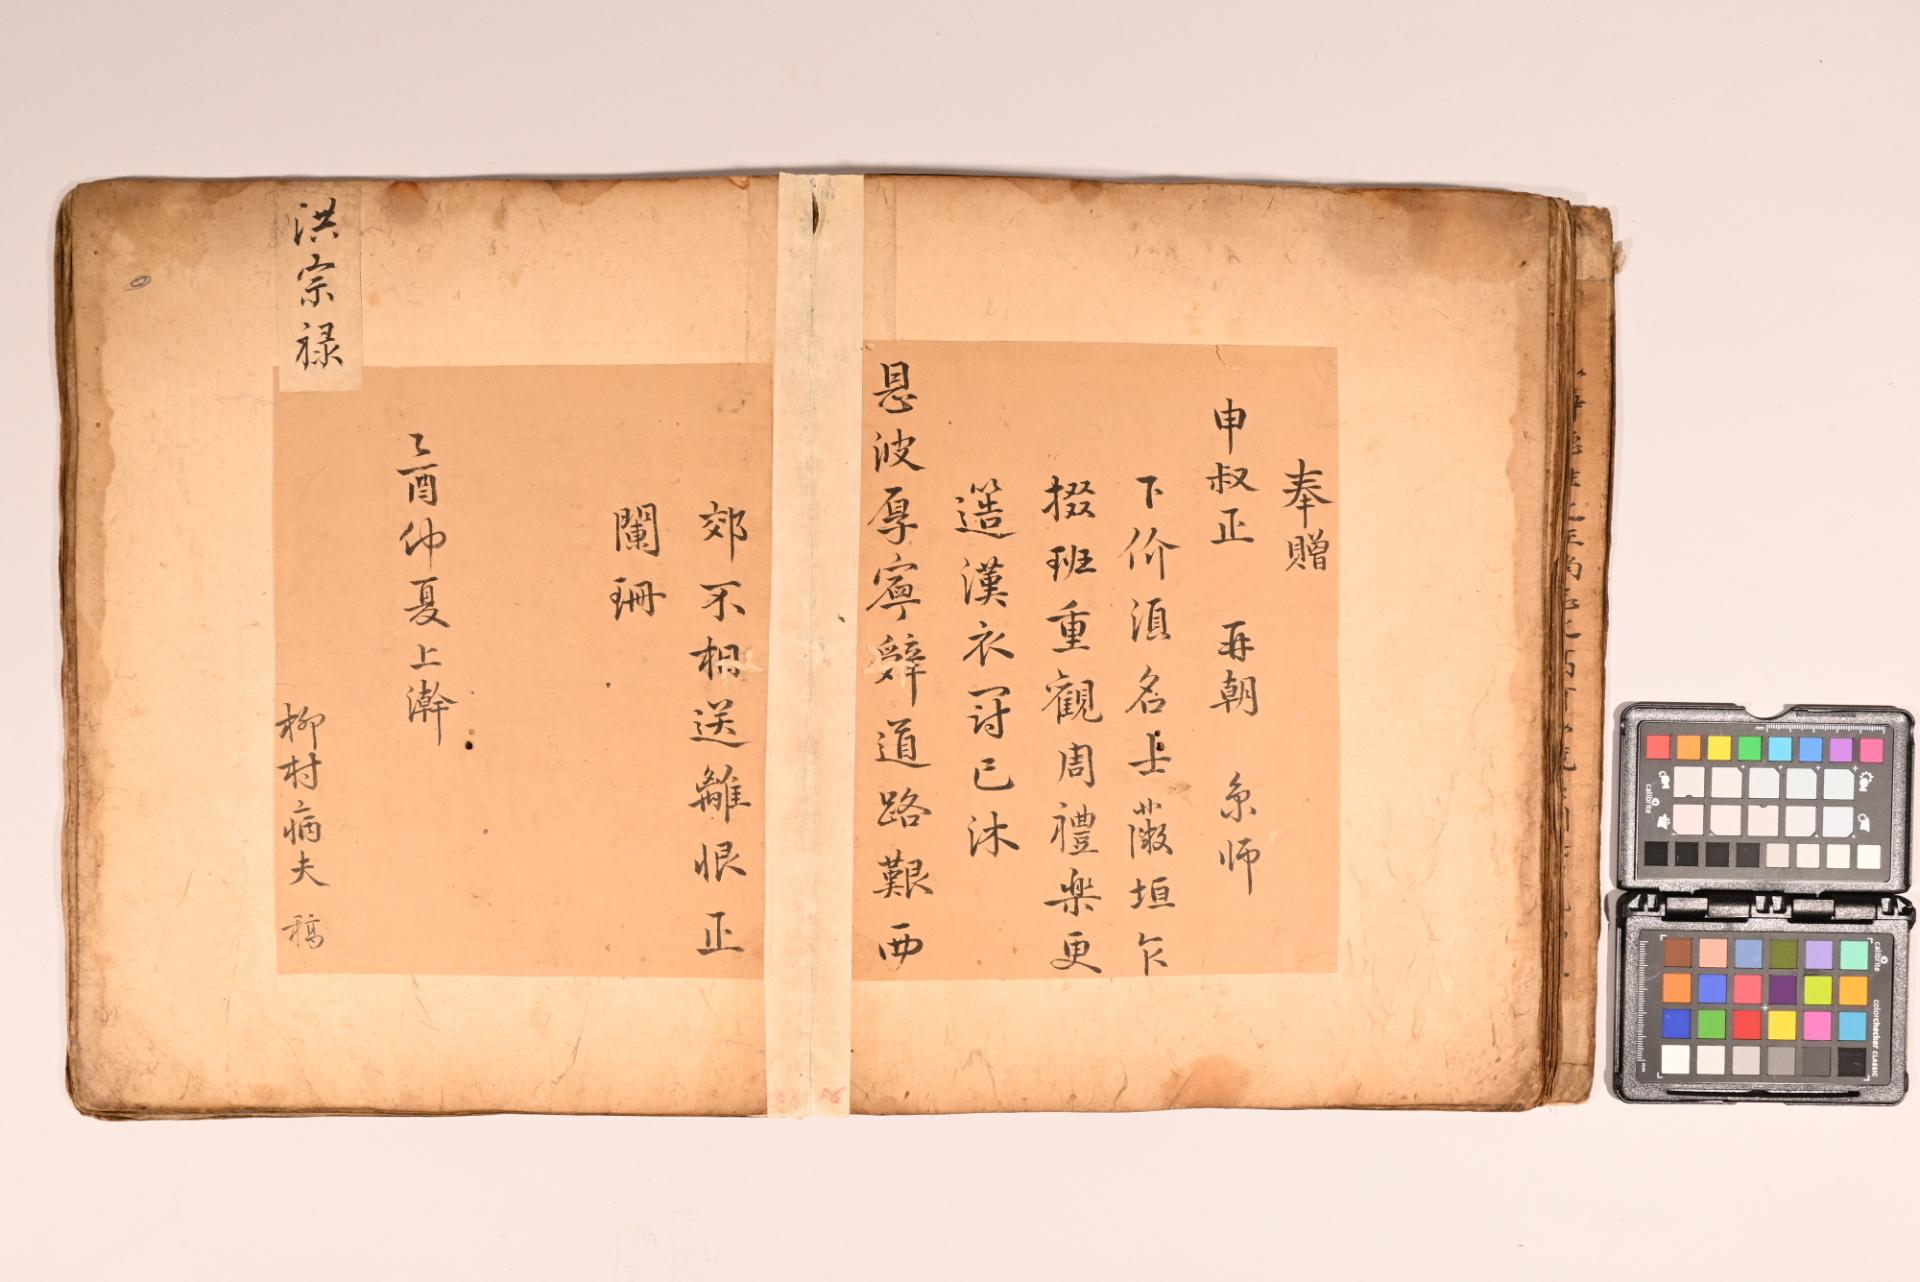 奉贈
申叔正 再朝 京師
下价須名士薇垣乍
掇班重觀周禮樂更
簉漢衣冠已沐
恩波厚寧辭道路艱西
郊不相送離恨正
闌珊
乙酉仲夏上澣
柳村病夫 稿
洪宗禄